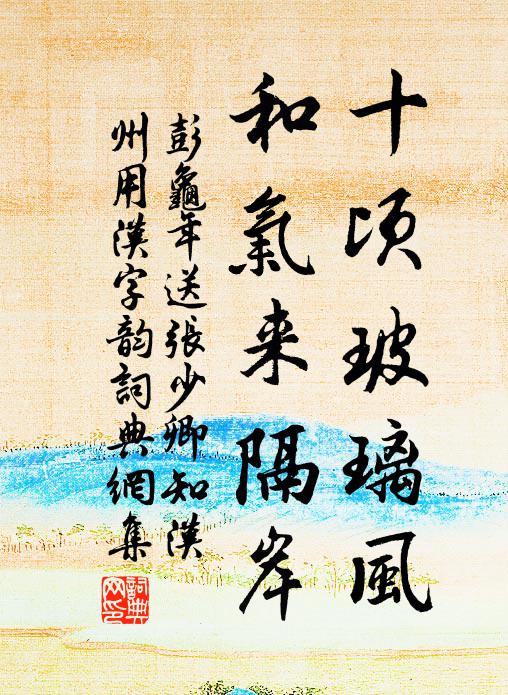 十頃玻璃風
和氣来隔岸
彭龜年送張少卿知漢
州用漢字韵詞典網集
詞典网印